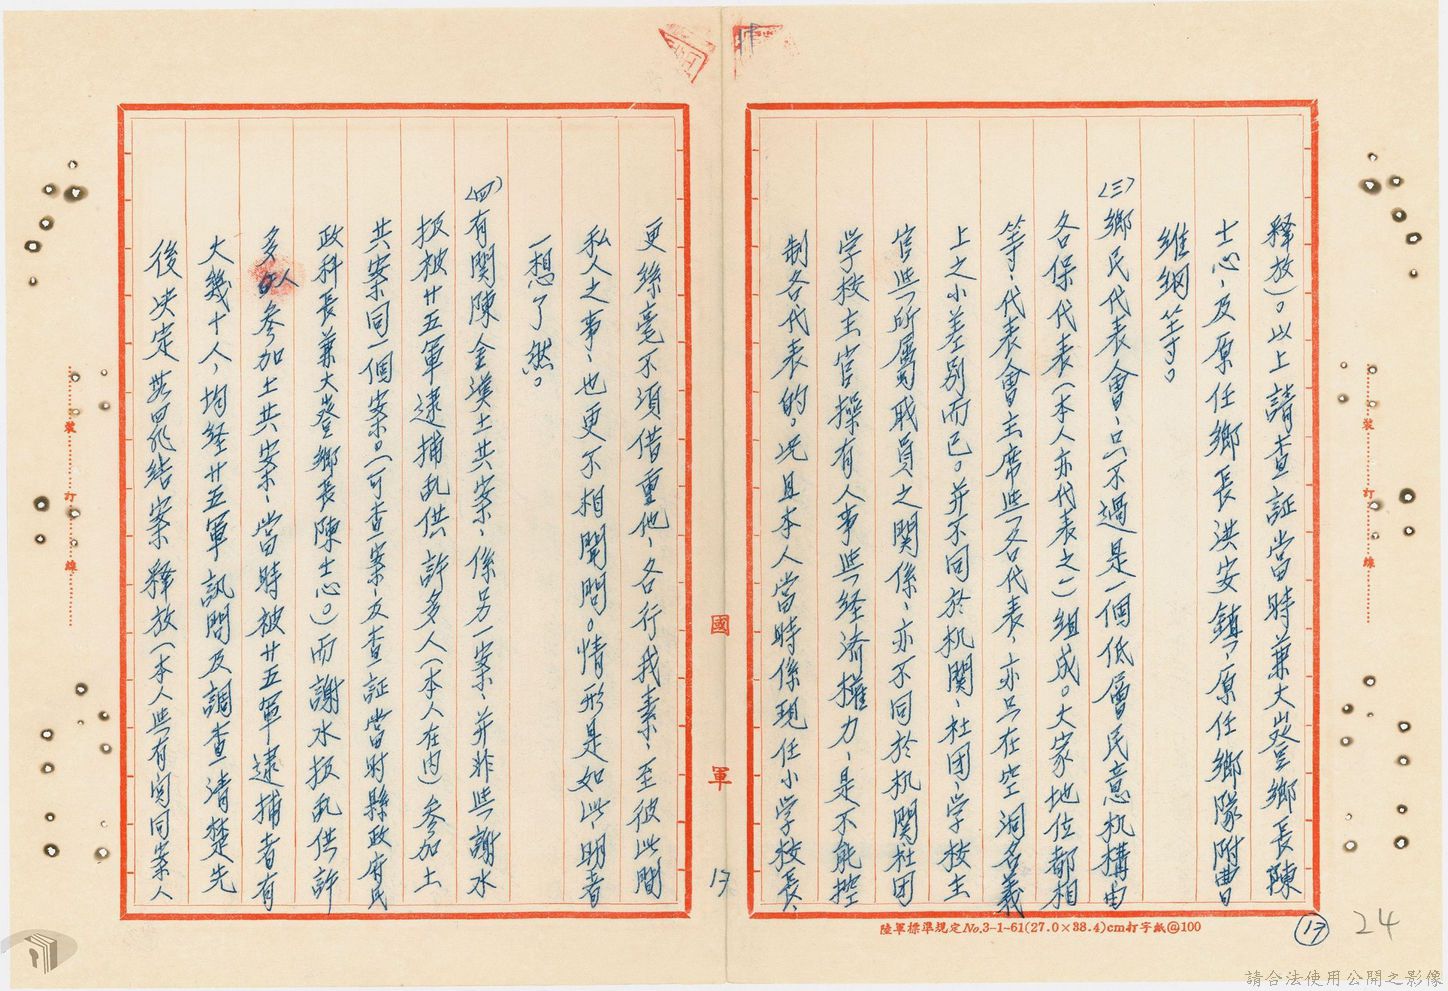 释放)。以上請查証當時兼大嶝鄉長陳
士心、及原任鄉長洪安鎮、原任鄉隊附曹
維綱等。
(三)鄉民代表會、只不過是一個低層民意机構由
各保代表(本人亦代表之一)組成。大家地位都相
等、代表會主席與各代表、亦只在空洞名義
上之小差別而已。并不同於机関、社团、学校主
官與所屬职員之関係、亦不同於机関社团
学校主官操有人事與经济權力、是不能控
制各代表的。况且本人當時係現任小学校長、
更絲毫不須借重他、各行我素、至彼此間
私人之事、也更不相聞問。情形是如此、明者
一想了然。
(四)有関陳金漢土共案、係另一案、并非與謝水
扳被廿五軍逮捕乱供許多人(本人在內)参加土
共案同一個案。(可查案、及查証當时縣政府民
政科長兼大嶝鄉長陳士心。)而謝水扳乱供許
多人参加土共案、當時被廿五軍逮捕者有
大幾十人、均经廿五軍訊問及調查清楚先
後決定無罪结案释放(本人與有関同案人
國軍
17
裝訂線
裝訂線
陸軍標準規定No.3-1-61(27.0×38.4)cm打字紙@100
17
24
請合法使用公開之影像